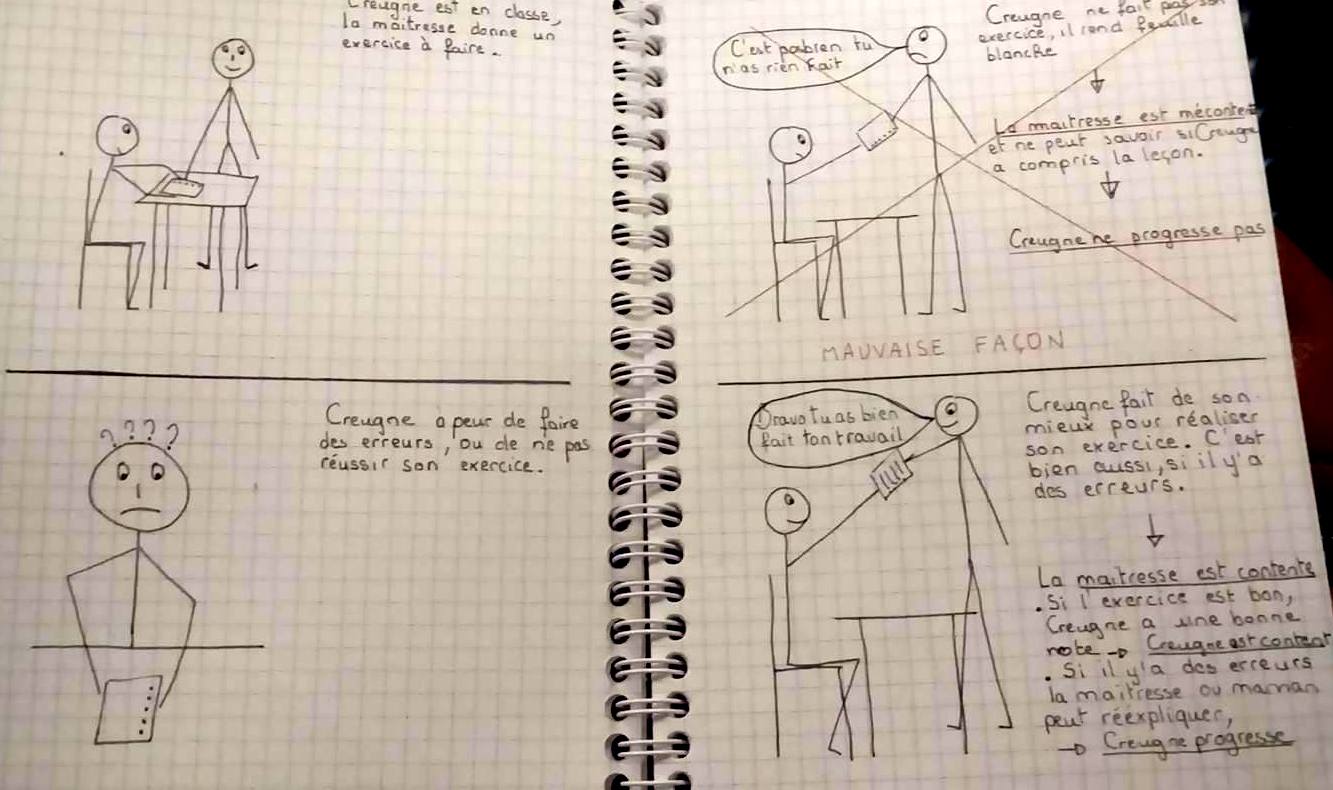 Creugne est en classe,
la maîtresse donne un
exercice à faire.
? ? ? ?
Creugne a peur de faire
des erreurs, ou de ne pas
réussir son exercice.
C'est pas bien tu
n'as rien fait
Creugne ne fait pas son
exercice, il rend feuille
blanche
La maitresse est mécontente
et ne peut savoir si Creugne
a compris la leçon.
Creugne ne progresse pas
MAUVAISE FAÇON
Bravo tu as bien
fait ton travail
Creugne fait de son
mieux pour réaliser
son exercice. C'est
bien aussi, si il y'a
des erreurs.
La maitresse est contente
. Si l'exercice est bon,
Creugne a une bonne
note → Creugne est content
. Si il y'a des erreurs
la maîtresse ou maman
peut réexpliquer,
→ Creugne progresse